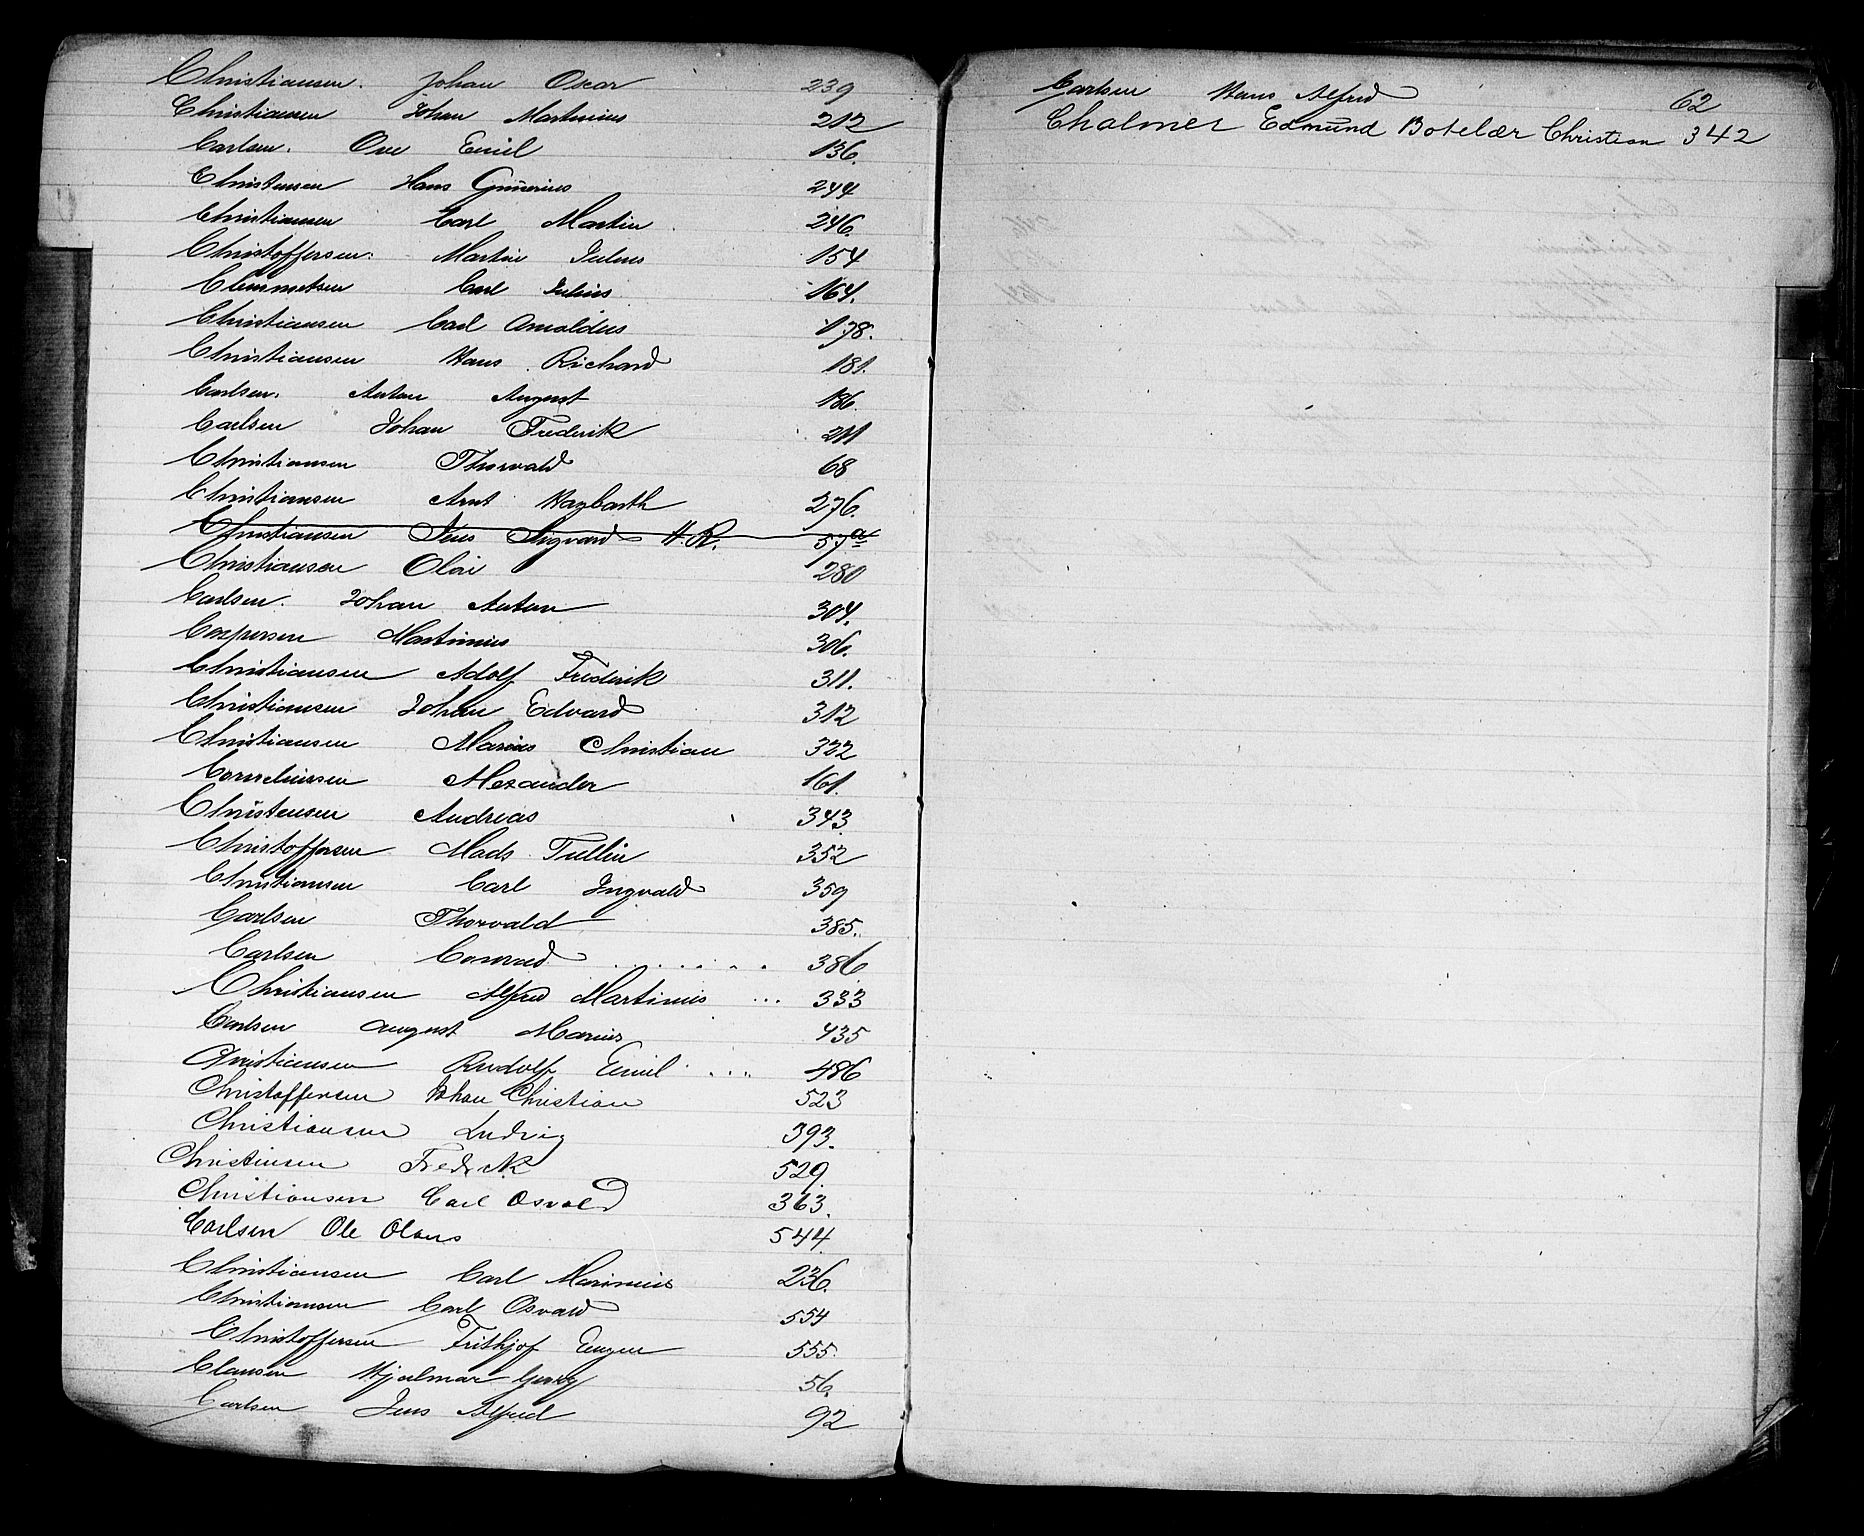 Christiansen. Johan Oscar 239
Christiansen Johan Martinius 212
Carlsen. Ove Emil 136.
Christensen Hans Gunerius 244
Christiansen Carl Martin 246.
Christoffersen. Martin Julius 154
Clemmetsen Carl Julius 164.
Christiansen Carl Arnoldus 178.
Christiansen Hans Richard 181.
Carlsen. Anton August 186.
Carlsen Johan Frederik 211
Christiansen Thorvald 68
Christiansen Arnt Hagbarth 276.
Christiansen Jens Sigvard H. R. 57a
Christiansen Olai 280
Carlsen. Johan Anton 304.
Caspersen Martinius 306.
Christiansen Adolf Frederik 311.
Christiansen Johan Edvard 312
Christiansen Marius Christian 322
Corneliussen Alexander 161.
Christensen Andreas 343.
Christoffersen Mads Tullin 352
Christiansen Carl Ingvald 359
Carlsen Thorvald 385.
Carlsen Conrad ....... 386
Christiansen Alfred Martinius ... 333
Carlsen August Marius 435
Christiansen Rudolf Emil .... 486
Christoffersen Johan Christian 523
Christiansen Ludvig 393.
Christinsen Fredrik 529.
Christiansen Carl Osvald 363.
Carlsen Ole Olaus 544.
Christiansen Carl Marinius 236.
Christiansen Carl Osvald 554
Christoffersen Frithjof Eugen 555.
Clausen Hjalmar Georg 56.
Carlsen Jens Alfred 92
Carlsen Hans Alfred 62
Chalmer Edmund Botelær Christian 342